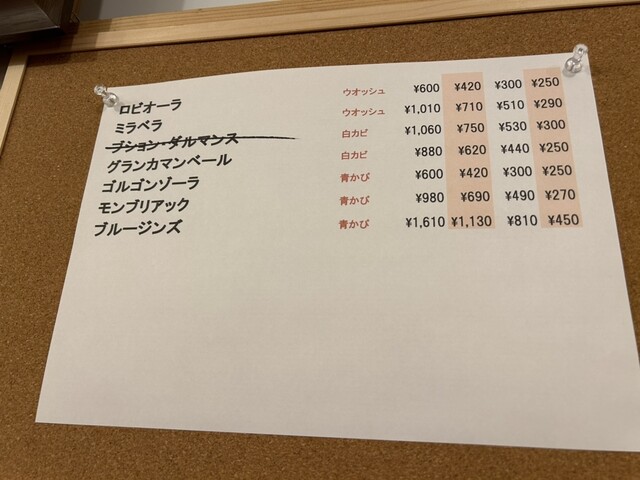 ロビオーラ ウオッシュ ¥600 ¥420 ¥300 ¥250
ミラベラ ウオッシュ ¥1,010 ¥710 ¥510 ¥290
ブション・ダルマンス 白カビ ¥1,060 ¥750 ¥530 ¥300
グランカマンベール 白カビ ¥880 ¥620 ¥440 ¥250
ゴルゴンゾーラ 青かび ¥600 ¥420 ¥300 ¥250
モンブリアック 青かび ¥980 ¥690 ¥490 ¥270
ブルージンズ 青かび ¥1,610 ¥1,130 ¥810 ¥450